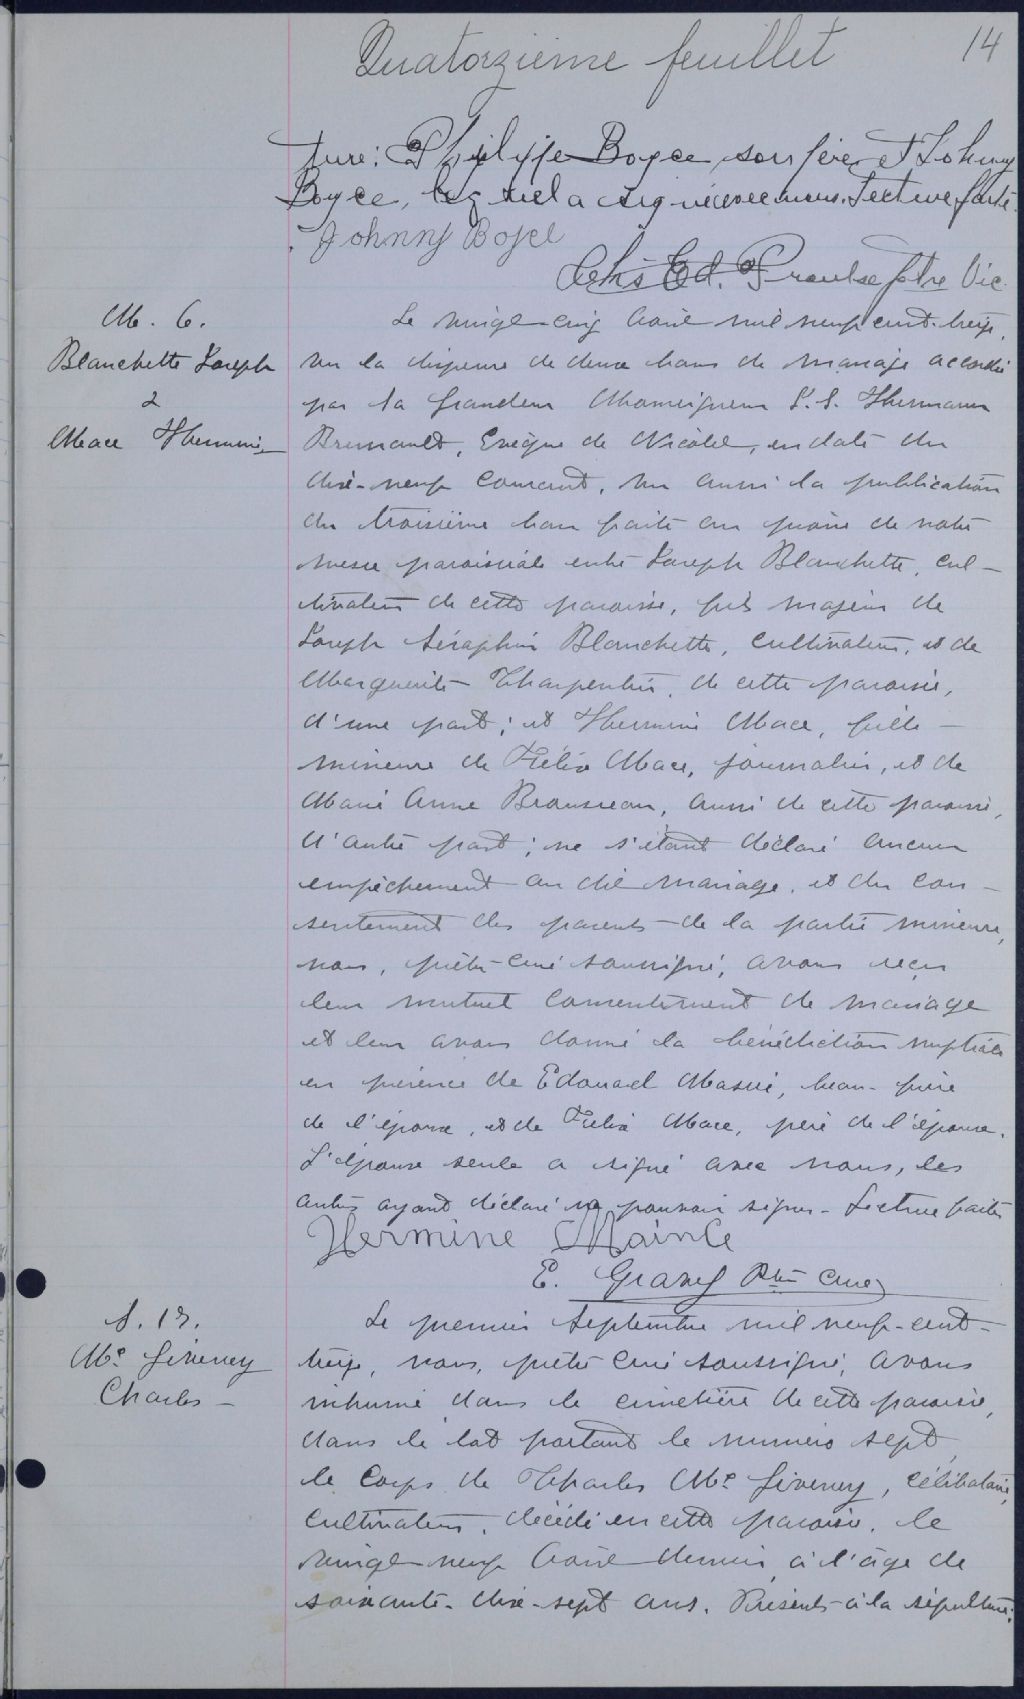 Quatorzième feuillet
14
ture: Philippe Boyce son père et Johnny
Boyce, lequel a signé avec nous. Lecture faite.
Johnny Boyce
Chs Ed. Proulx ptre Vic.
M. 6.
Blanchette Joseph
&
Mace Hermine
Le vingt-cinq Août mil neuf cent-treize,
vu la dispense de deux bans de mariage accordée
par Sa Grandeur Monseigneur J. S. Hermann
Brunault, Evêque de Nicolet, en date du
dix-neuf courant, vu aussi la publication
du troisième ban faite au prône de notre
messe paroissiale entre Joseph Blanchette, cul-
tivateur de cette paroisse, fils majeur de
Joseph Séraphin Blanchette, cultivateur, et de
Marguerite Charpentier, de cette paroisse,
d'une part; et Hermine Mace, fille
mineure de Félix Mace, journalier, et de
Marie Anne Brousseau, aussi de cette paroisse,
d'autre part; ne s'étant déclaré aucun
empêchement au dit mariage, et du con-
sentement des parents de la partie mineure,
nous, prêtre-curé soussigné, avons reçu
leur mutuel consentement de mariage
et leur avons donné la bénédiction nuptiale
en présence de Edouard Massé, beau-frère
de l'époux, et de Felix Mace, père de l'épouse.
L'épouse seule a signé avec nous, les
autres ayant déclaré ne pouvoir signer. Lecture faite
Hermine Maince
E. Gravel Ptre Curé
S. 13.
Mc Giveney
Charles
Le premier Septembre mil neuf-cent-
treize, nous, prêtre curé soussigné, avons
inhumé dans le cimetière de cette paroisse,
dans le lot portant le numéro sept,
le corps de Charles Mc Giveney, célibataire,
cultivateur, décédé en cette paroisse, le
vingt-neuf Août dernier, à l'âge de
soixante-dix-sept ans. Présents à la sépulture: